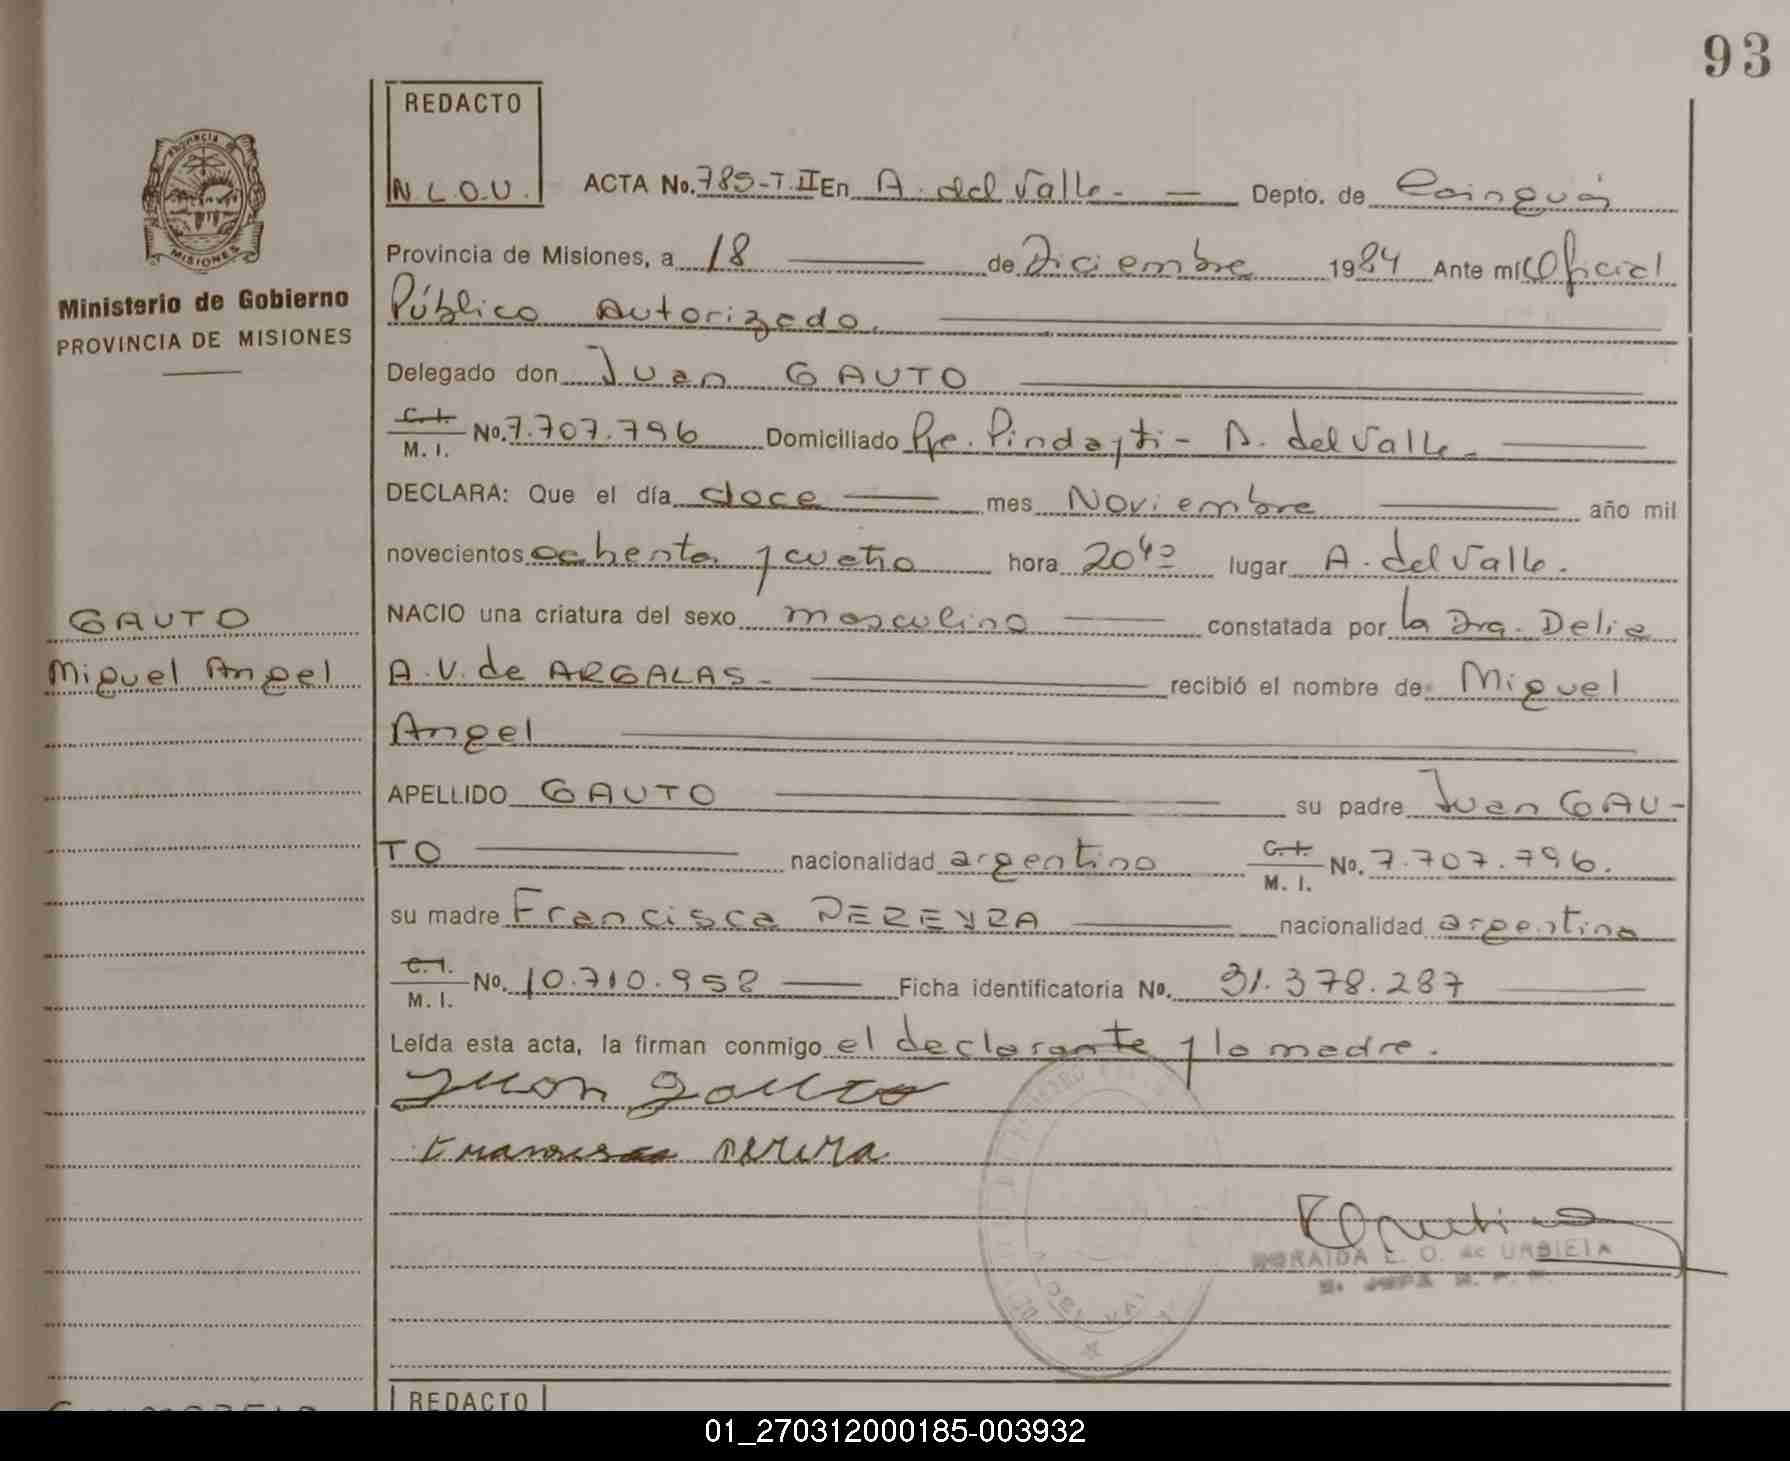 93
REDACTO
N.L.O.U.
ACTA No. 785-T.II En A. del Valle.- Depto. de Cainguás
Provincia de Misiones, a 18 de Diciembre 1984 Ante mí Oficial
Público Autorizado.
Delegado don Juan GAUTO
C.I. M.I. No. 7.707.796 Domiciliado Pje. Pindayti - A. del Valle.
DECLARA: Que el día doce mes Noviembre año mil
novecientos ochenta y cuatro hora 20⁴⁰ lugar A. del Valle.
NACIO una criatura del sexo masculino constatada por la Dra. Delia
A.V. de ARGALAS.- recibió el nombre de Miguel
Angel
APELLIDO GAUTO su padre Juan GAU-
TO nacionalidad argentino C.I. M.I. No. 7.707.796.
su madre Francisca PEREYRA nacionalidad argentina
C.I. M.I. No. 10.710.958 Ficha identificatoria No. 31.378.287
Leída esta acta, la firman conmigo el declarante y la madre.
Juan Gauto
Francisca Perera
L. O. de URBIETA
Provincia de
MISIONES
Ministerio de Gobierno
PROVINCIA DE MISIONES
GAUTO
Miguel Angel
REDACTO
01_270312000185-003932